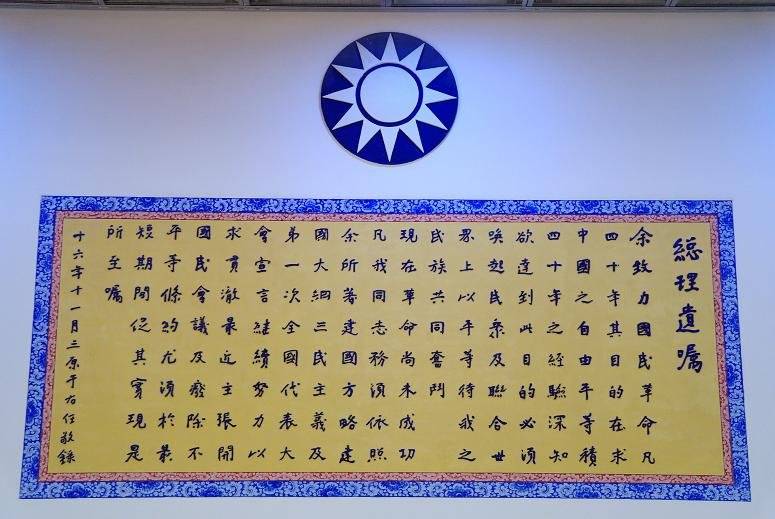 總理遺囑
余致力國民革命凡
四十年其目的在求
中國之自由平等積
四十年之經驗深知
欲達到此目的必須
喚起民眾及聯合世
界上以平等待我之
民族共同奮鬥
現在革命尚未成功
凡我同志務須依照
余所著建國方略建
國大綱三民主義及
第一次全國代表大
會宣言繼續努力以
求貫澈最近主張開
國民會議及廢除不
平等條約尤須於最
短期間促其實現是
所至囑
十六年十一月三原于右任敬錄